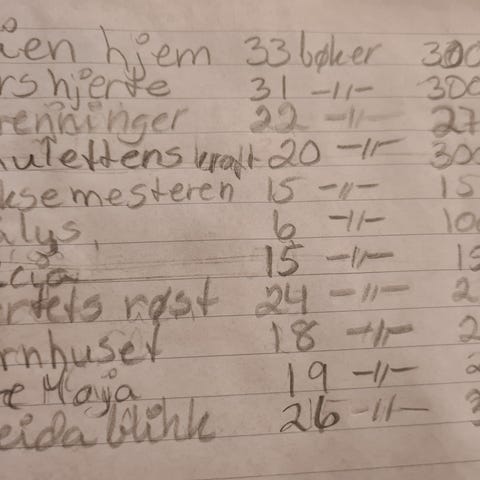 åen hjem 33 bøker 300
rs hjerte 31 -"- 300
renninger 22 -"- 27
ulettens kraft 20 -"- 300
ksemesteren 15 -"- 15
alys, 6 -"- 100
icia 15 -"- 15
rtets røst 24 -"- 2
rnhuset 18 -"- 2
e Maja 19 -"- 2
eida blikk 26 -"- 3